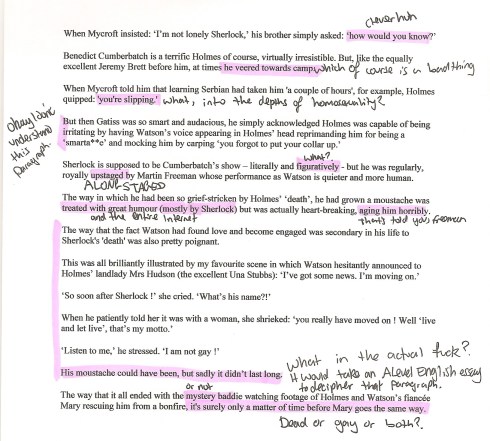 clever huh
When Mycroft insisted: ‘I’m not lonely Sherlock,’ his brother simply asked: ‘how would you know?’
Benedict Cumberbatch is a terrific Holmes of course, virtually irresistible. But, like the equally
excellent Jeremy Brett before him, at times he veered towards camp. which of course is a bad thing
When Mycroft told him that learning Serbian had taken him 'a couple of hours', for example, Holmes
quipped: 'you're slipping.' what, into the depths of homosexuality?
Okay I don't
understand
this
paragraph.
But then Gatiss was so smart and audacious, he simply acknowledged Holmes was capable of being
irritating by having Watson's voice appearing in Holmes' head reprimanding him for being a
‘smarta**e’ and mocking him by carping ‘you forgot to put your collar up.’
what?
Sherlock is supposed to be Cumberbatch’s show – literally and figuratively - but he was regularly,
royally upstaged by Martin Freeman whose performance as Watson is quieter and more human.
ALONE-STAGED
The way in which he had been so grief-stricken by Holmes’ ‘death’, he had grown a moustache was
treated with great humour (mostly by Sherlock) but was actually heart-breaking, aging him horribly.
and the entire internet
that's told you Freeman
The way that the fact Watson had found love and become engaged was secondary in his life to
Sherlock's 'death' was also pretty poignant.
This was all brilliantly illustrated by my favourite scene in which Watson hesitantly announced to
Holmes’ landlady Mrs Hudson (the excellent Una Stubbs): ‘I’ve got some news. I’m moving on.’
‘So soon after Sherlock !’ she cried. ‘What’s his name?!’
When he patiently told her it was with a woman, she shrieked: ‘you really have moved on ! Well ‘live
and let live’, that’s my motto.’
‘Listen to me,’ he stressed. ‘I am not gay !’
His moustache could have been, but sadly it didn’t last long.
What in the actual fuck?
It would take an A level English essay
to decipher that paragraph.
or not
The way that it all ended with the mystery baddie watching footage of Holmes and Watson’s fiancée
Mary rescuing him from a bonfire, it’s surely only a matter of time before Mary goes the same way.
Dead or gay or both?